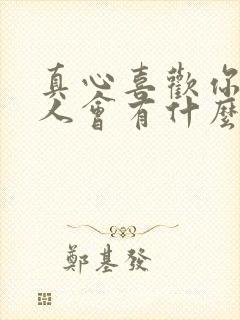 真心喜歡你
人會有什麼
鄭基發